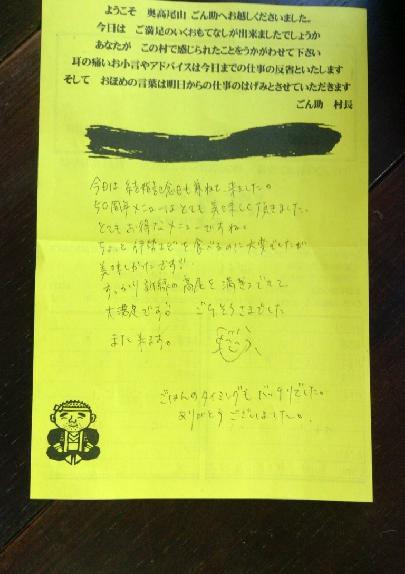 ようこそ 奥高尾山 ごん助へお越しくださいました。
今日は ご満足のいくおもてなしが出来ましたでしょうか
あなたが この村で感じられたことをうかがわせて下さい
耳の痛いお小言やアドバイスは今日までの仕事の反省といたします
そして おほめの言葉は明日からの仕事のはげみとさせていただきます
ごん助 村長
今日は結婚記念日も兼ねて来ました。
50周年メニューはとても美味しく頂きました。
とてもお得なメニューですね。
ちょっと伊勢エビを食べるのに大変でしたが
美味しかったです!!
すっかり新緑の高尾を満喫できて
大満足です。 ごちそうさまでした
また来ます。
ごはんのタイミングもバッチリでした。
ありがとうございました。